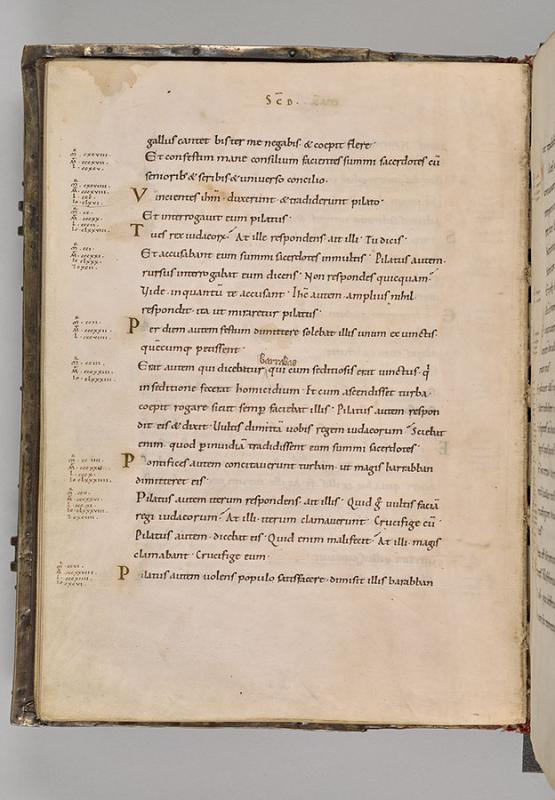 Sc̄D.
gallus cantet bis ter me negabis & coepit flere
Et confestim mane consilium facientes summi sacerdotes cū
seniorib; & scribis & uniuerso concilio.
Vincientes ihm̄ duxerunt & tradiderunt pilato.
Et interrogauit eum pilatus.
Tu es rex iudaeorx̄. At ille respondens ait illi. Tu dicis.
Et accusabant eum summi sacerdotes in multis. Pilatus autem
rursus interrogabat eum dicens. Non respondes quicquam.
Uide in quantū te accusant. Ihc̄ autem amplius nihil
respondit ita ut miraretur pilatus.
Per diem autem festum dimittere solebat illis unum ex uinctis
quēcumq; petissent
barrabas
Erat autem qui dicebatur, qui cum seditiosis erat uinctus. q̄
in seditione fecerat homicidium. Et cum ascendisset turba.
coepit rogare sicut semp̄ faciebat illis. Pilatus autem respon
dit eis & dixit. Uultis dimittā uobis regem iudaeorum. Sciebat
enim quod p̄ inuidiā tradidissent eum summi sacerdotes
Pontifices autem concitauerunt turbam. ut magis barabban
dimitteret eis.
Pilatus autem iterum respondens ait illis. Quid ḡ uultis faciā
regi iudaeorum. At illi iterum clamauerunt. Crucifige eū.
Pilatus autem dicebat eis. Quid enim mali fecit. At illi magis
clamabant. Crucifige eum.
Pilatus autem uolens populo satisfacere dimisit illis barabban